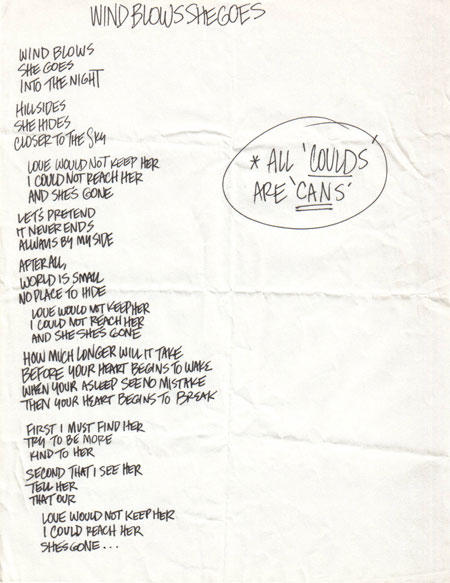 WIND BLOWS SHE GOES
WIND BLOWS
SHE GOES
INTO THE NIGHT
HILLSIDES
SHE HIDES
CLOSER TO THE SKY
LOVE WOULD NOT KEEP HER
I COULD NOT REACH HER
AND SHE'S GONE
* ALL 'COULDS'
ARE 'CANS'
LET'S PRETEND
IT NEVER ENDS
ALWAYS BY MY SIDE
AFTER ALL,
WORLD IS SMALL
NO PLACE TO HIDE
LOVE WOULD NOT KEEP HER
I COULD NOT REACH HER
AND SHE SHE'S GONE
HOW MUCH LONGER WILL IT TAKE
BEFORE YOUR HEART BEGINS TO WAKE
WHEN YOUR ASLEEP SEE NO MISTAKE
THEN YOUR HEART BEGINS TO BREAK
FIRST I MUST FIND HER
TRY TO BE MORE
KIND TO HER
SECOND THAT I SEE HER
TELL HER
THAT OUR
LOVE WOULD NOT KEEP HER
I COULD REACH HER
SHE'S GONE...